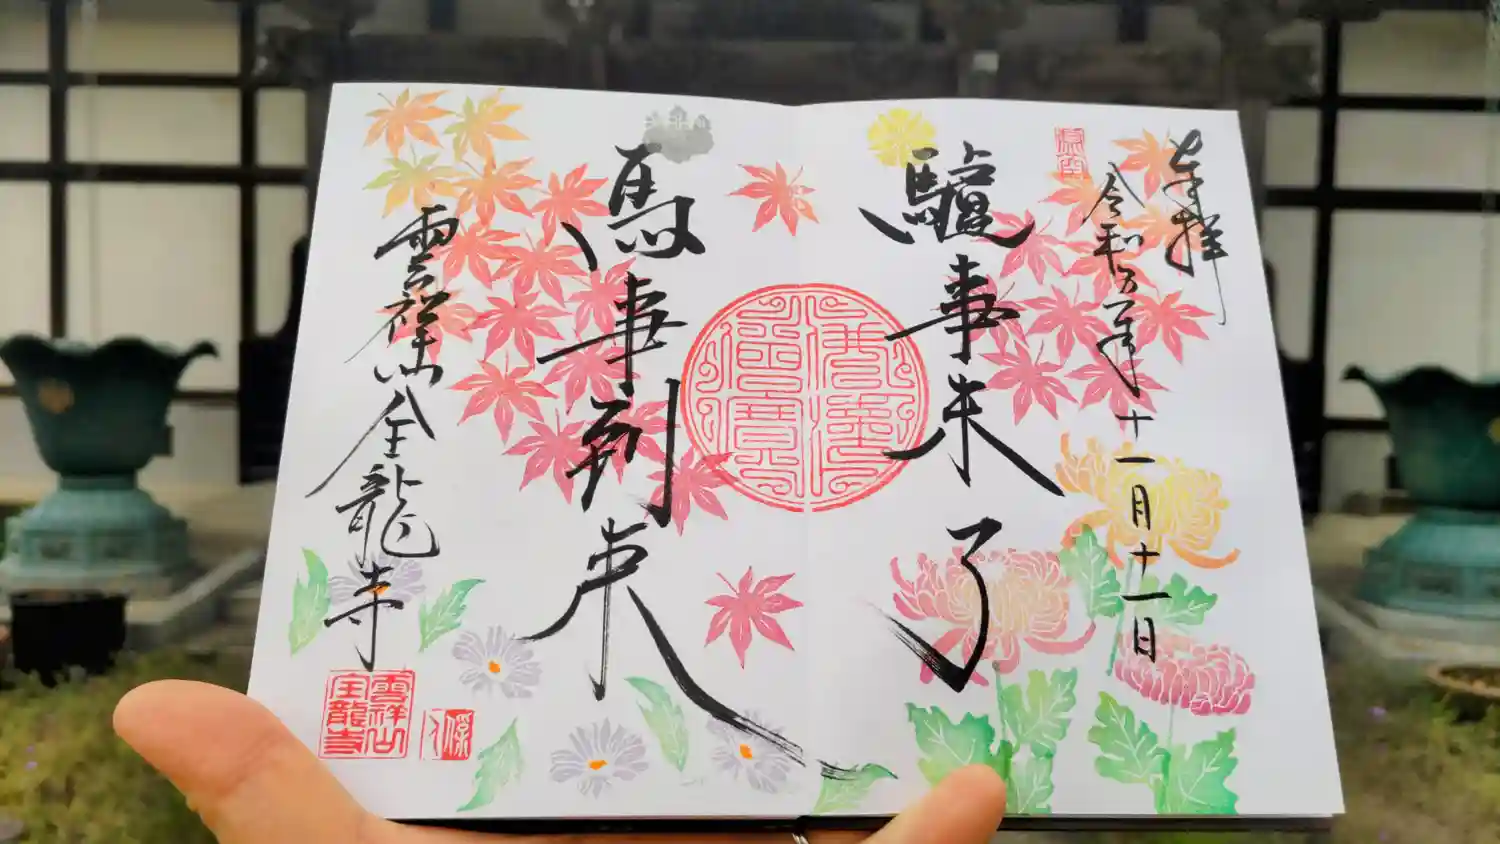 奉拝
令和五年十一月十一日
驢事未了
馬事到来
雲祥山全龍寺
佛法僧寶
雲祥山
全龍寺